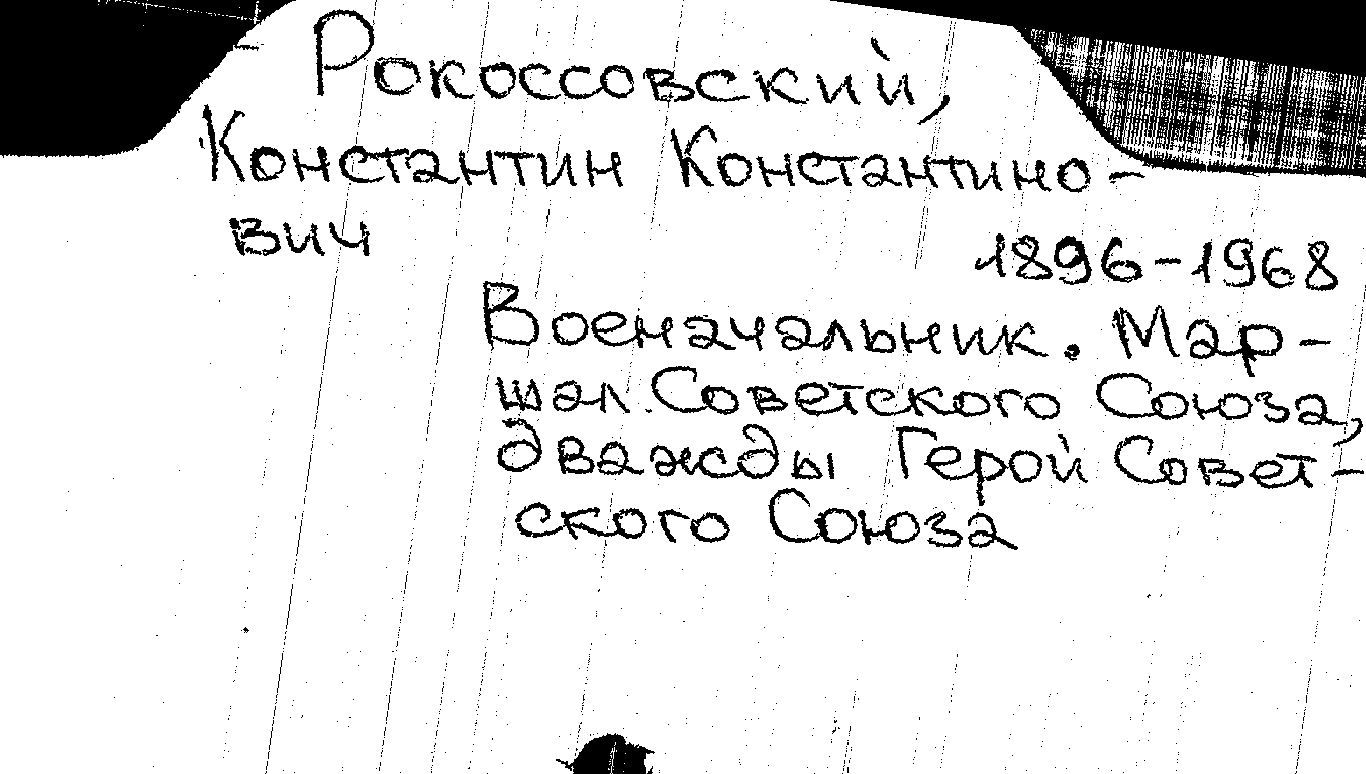 Рокоссовский,
Константин Константино-
вич
1896-1968
Военачальник. Мар-
шал Советского Союза,
дважды Герой Совет-
ского Союза